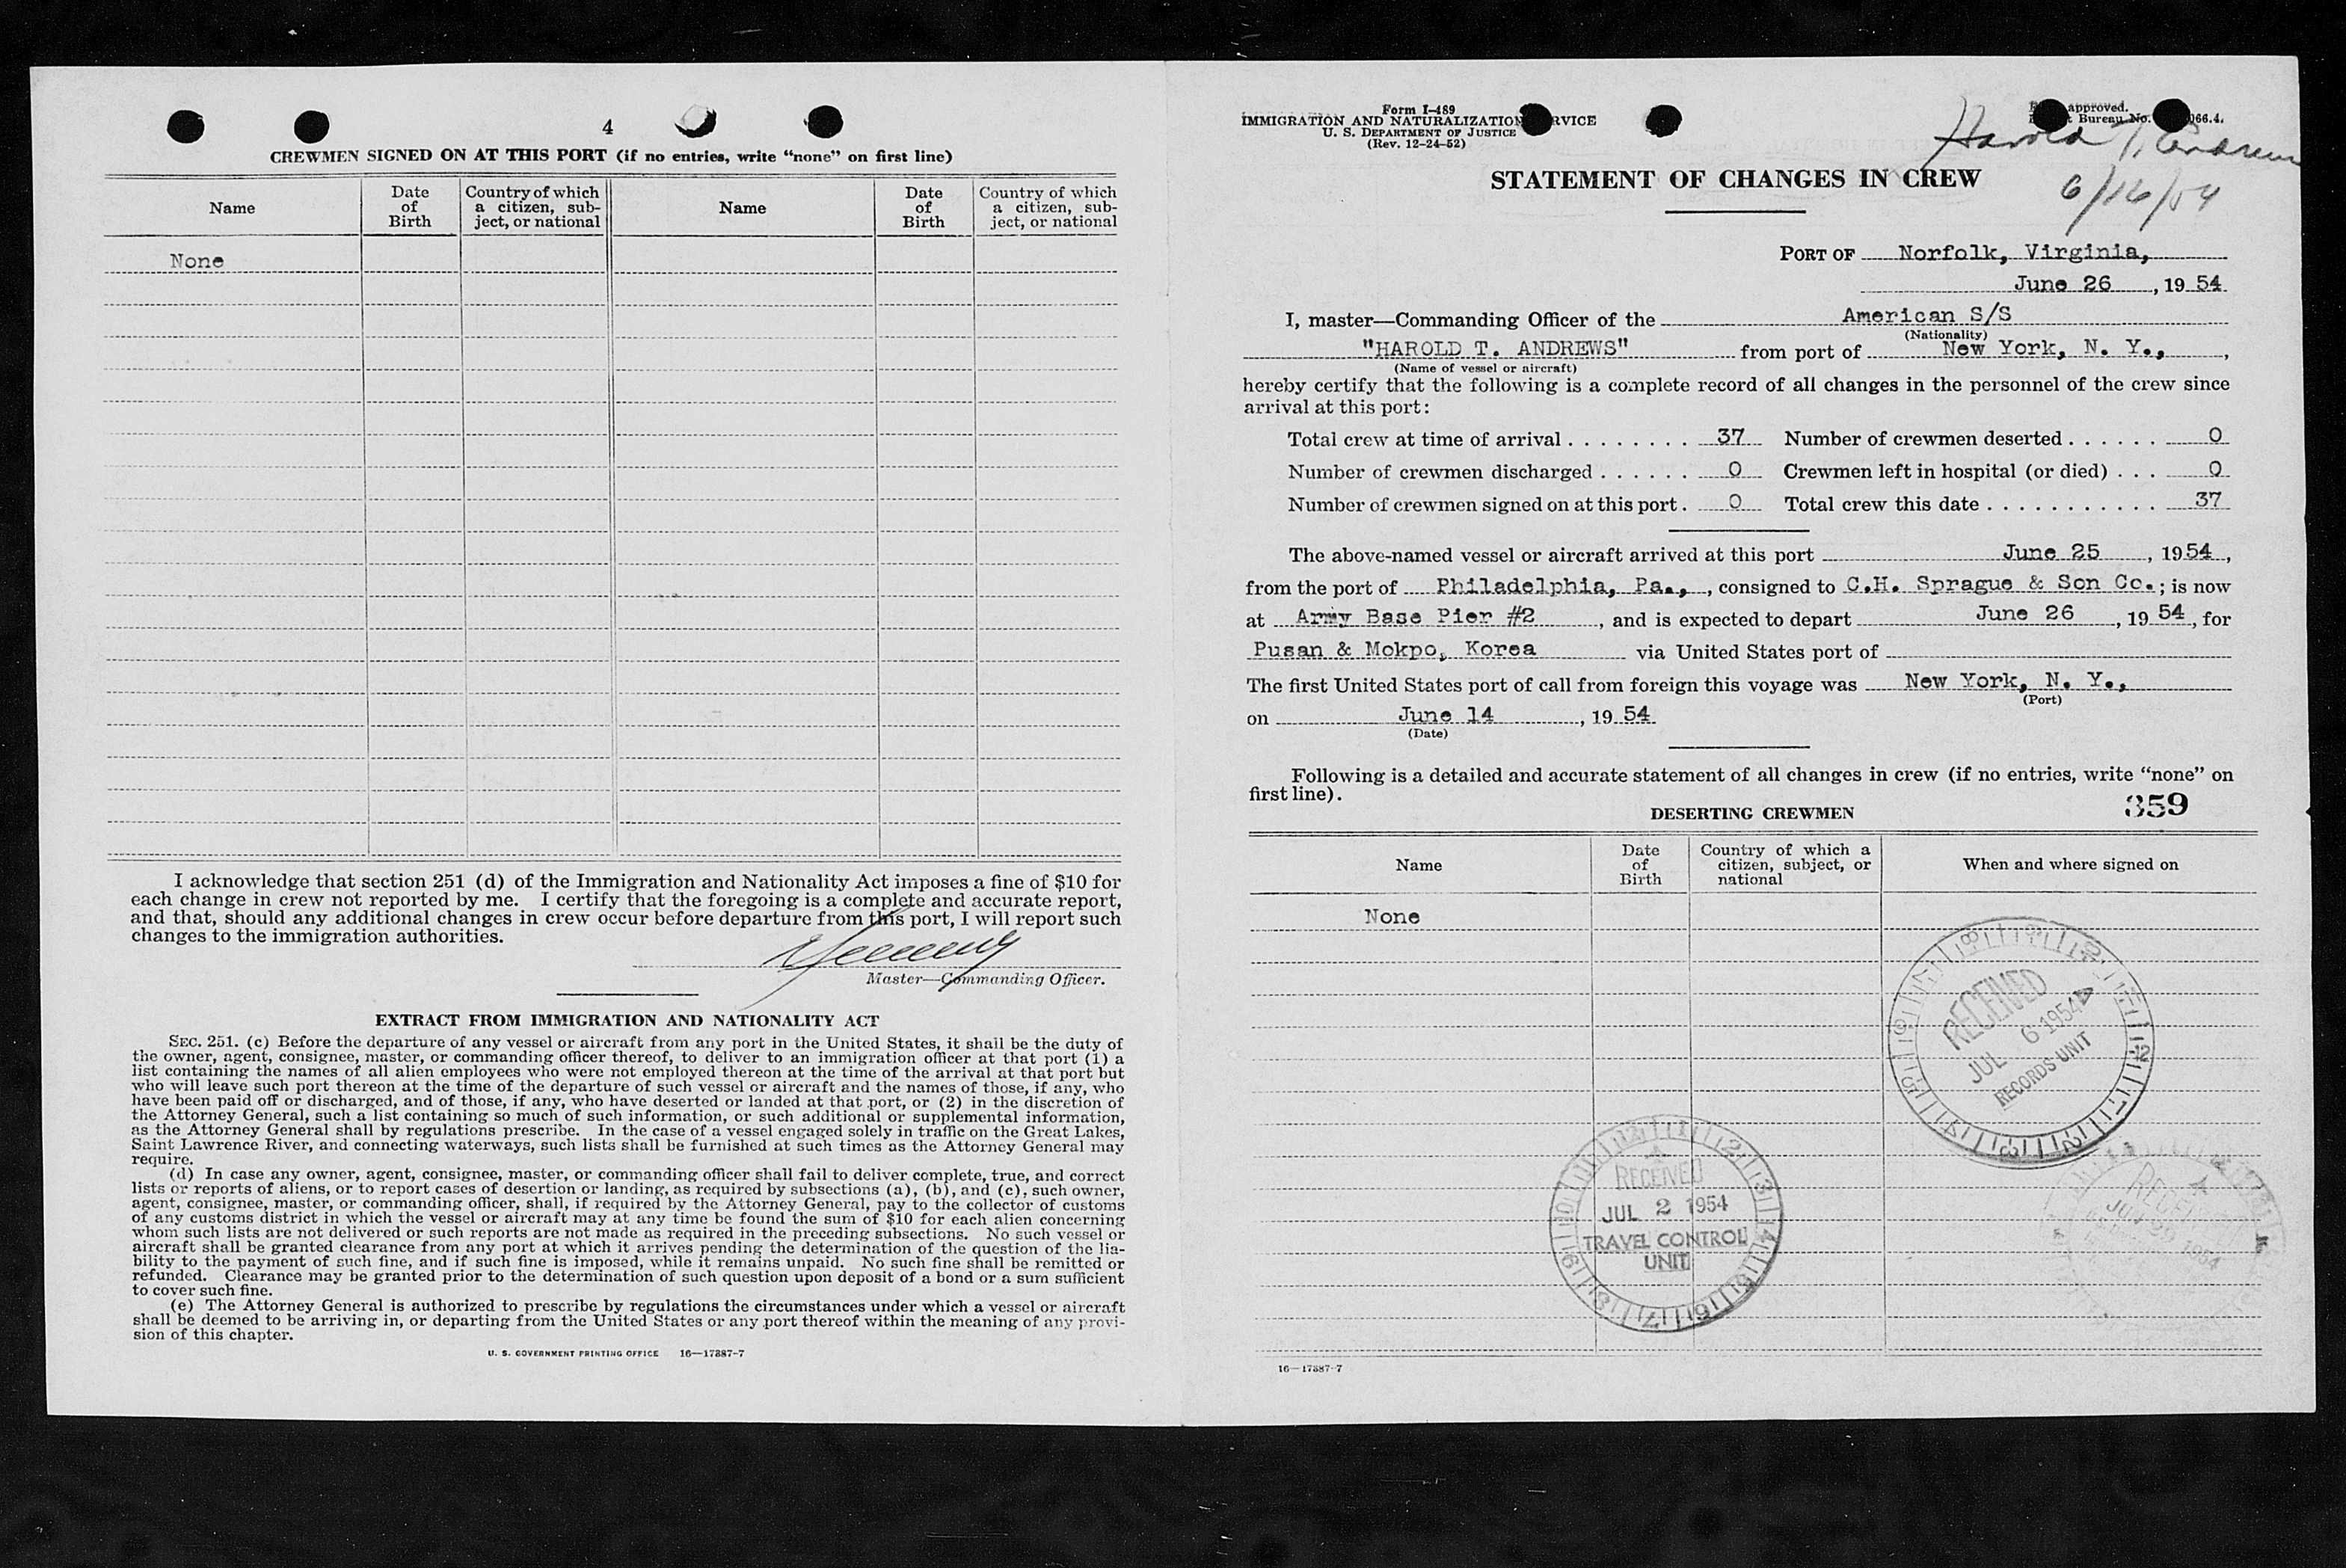 4
CREWMEN SIGNED ON AT THIS PORT (if no entries, write "none" on first line)
Name
Date of Birth
Country of which a citizen, subject, or national
Name
Date of Birth
Country of which a citizen, subject, or national
None
I acknowledge that section 251 (d) of the Immigration and Nationality Act imposes a fine of $10 for
each change in crew not reported by me. I certify that the foregoing is a complete and accurate report,
and that, should any additional changes in crew occur before departure from this port, I will report such
changes to the immigration authorities.
Master—Commanding Officer.
EXTRACT FROM IMMIGRATION AND NATIONALITY ACT
SEC. 251. (c) Before the departure of any vessel or aircraft from any port in the United States, it shall be the duty of
the owner, agent, consignee, master, or commanding officer thereof, to deliver to an immigration officer at that port (1) a
list containing the names of all alien employees who were not employed thereon at the time of the arrival at that port but
who will leave such port thereon at the time of the departure of such vessel or aircraft and the names of those, if any, who
have been paid off or discharged, and of those, if any, who have deserted or landed at that port, or (2) in the discretion of
the Attorney General, such a list containing so much of such information, or such additional or supplemental information,
as the Attorney General shall by regulations prescribe. In the case of a vessel engaged solely in traffic on the Great Lakes,
Saint Lawrence River, and connecting waterways, such lists shall be furnished at such times as the Attorney General may
require.
(d) In case any owner, agent, consignee, master, or commanding officer shall fail to deliver complete, true, and correct
lists or reports of aliens, or to report cases of desertion or landing, as required by subsections (a), (b), and (c), such owner,
agent, consignee, master, or commanding officer, shall, if required by the Attorney General, pay to the collector of customs
of any customs district in which the vessel or aircraft may at any time be found the sum of $10 for each alien concerning
whom such lists are not delivered or such reports are not made as required in the preceding subsections. No such vessel or
aircraft shall be granted clearance from any port at which it arrives pending the determination of the question of the lia-
bility to the payment of such fine, and if such fine is imposed, while it remains unpaid. No such fine shall be remitted or
refunded. Clearance may be granted prior to the determination of such question upon deposit of a bond or a sum sufficient
to cover such fine.
(e) The Attorney General is authorized to prescribe by regulations the circumstances under which a vessel or aircraft
shall be deemed to be arriving in, or departing from the United States or any port thereof within the meaning of any provi-
sion of this chapter.
U. S. GOVERNMENT PRINTING OFFICE 16—17887-7
Form I-489
IMMIGRATION AND NATURALIZATION SERVICE
U. S. DEPARTMENT OF JUSTICE
(Rev. 12-24-52)
approved.
Bureau No. 066.4.
Harold T. Andrews
6/16/54
STATEMENT OF CHANGES IN CREW
PORT OF Norfolk, Virginia,
June 26, 1954
I, master—Commanding Officer of the American S/S
(Nationality)
"HAROLD T. ANDREWS" from port of New York, N. Y.,,
(Name of vessel or aircraft)
hereby certify that the following is a complete record of all changes in the personnel of the crew since
arrival at this port:
Total crew at time of arrival . . . . . . . . 37 Number of crewmen deserted . . . . . . 0
Number of crewmen discharged . . . . . . 0 Crewmen left in hospital (or died) . . . 0
Number of crewmen signed on at this port . 0 Total crew this date . . . . . . . . . . . 37
The above-named vessel or aircraft arrived at this port June 25, 1954,
from the port of Philadelphia, Pa.,, consigned to C.H. Sprague & Son Co.; is now
at Army Base Pier #2, and is expected to depart June 26, 1954, for
Pusan & Mokpo, Korea via United States port of
The first United States port of call from foreign this voyage was New York, N. Y.,
(Port)
on June 14, 1954
(Date)
Following is a detailed and accurate statement of all changes in crew (if no entries, write "none" on
first line).
359
DESERTING CREWMEN
Name
Date of Birth
Country of which a citizen, subject, or national
When and where signed on
None
RECEIVED
JUL 6 1954
RECORDS UNIT
RECEIVED
JUL 2 1954
TRAVEL CONTROL
UNIT
RECEIVED
1954
16—17887-7